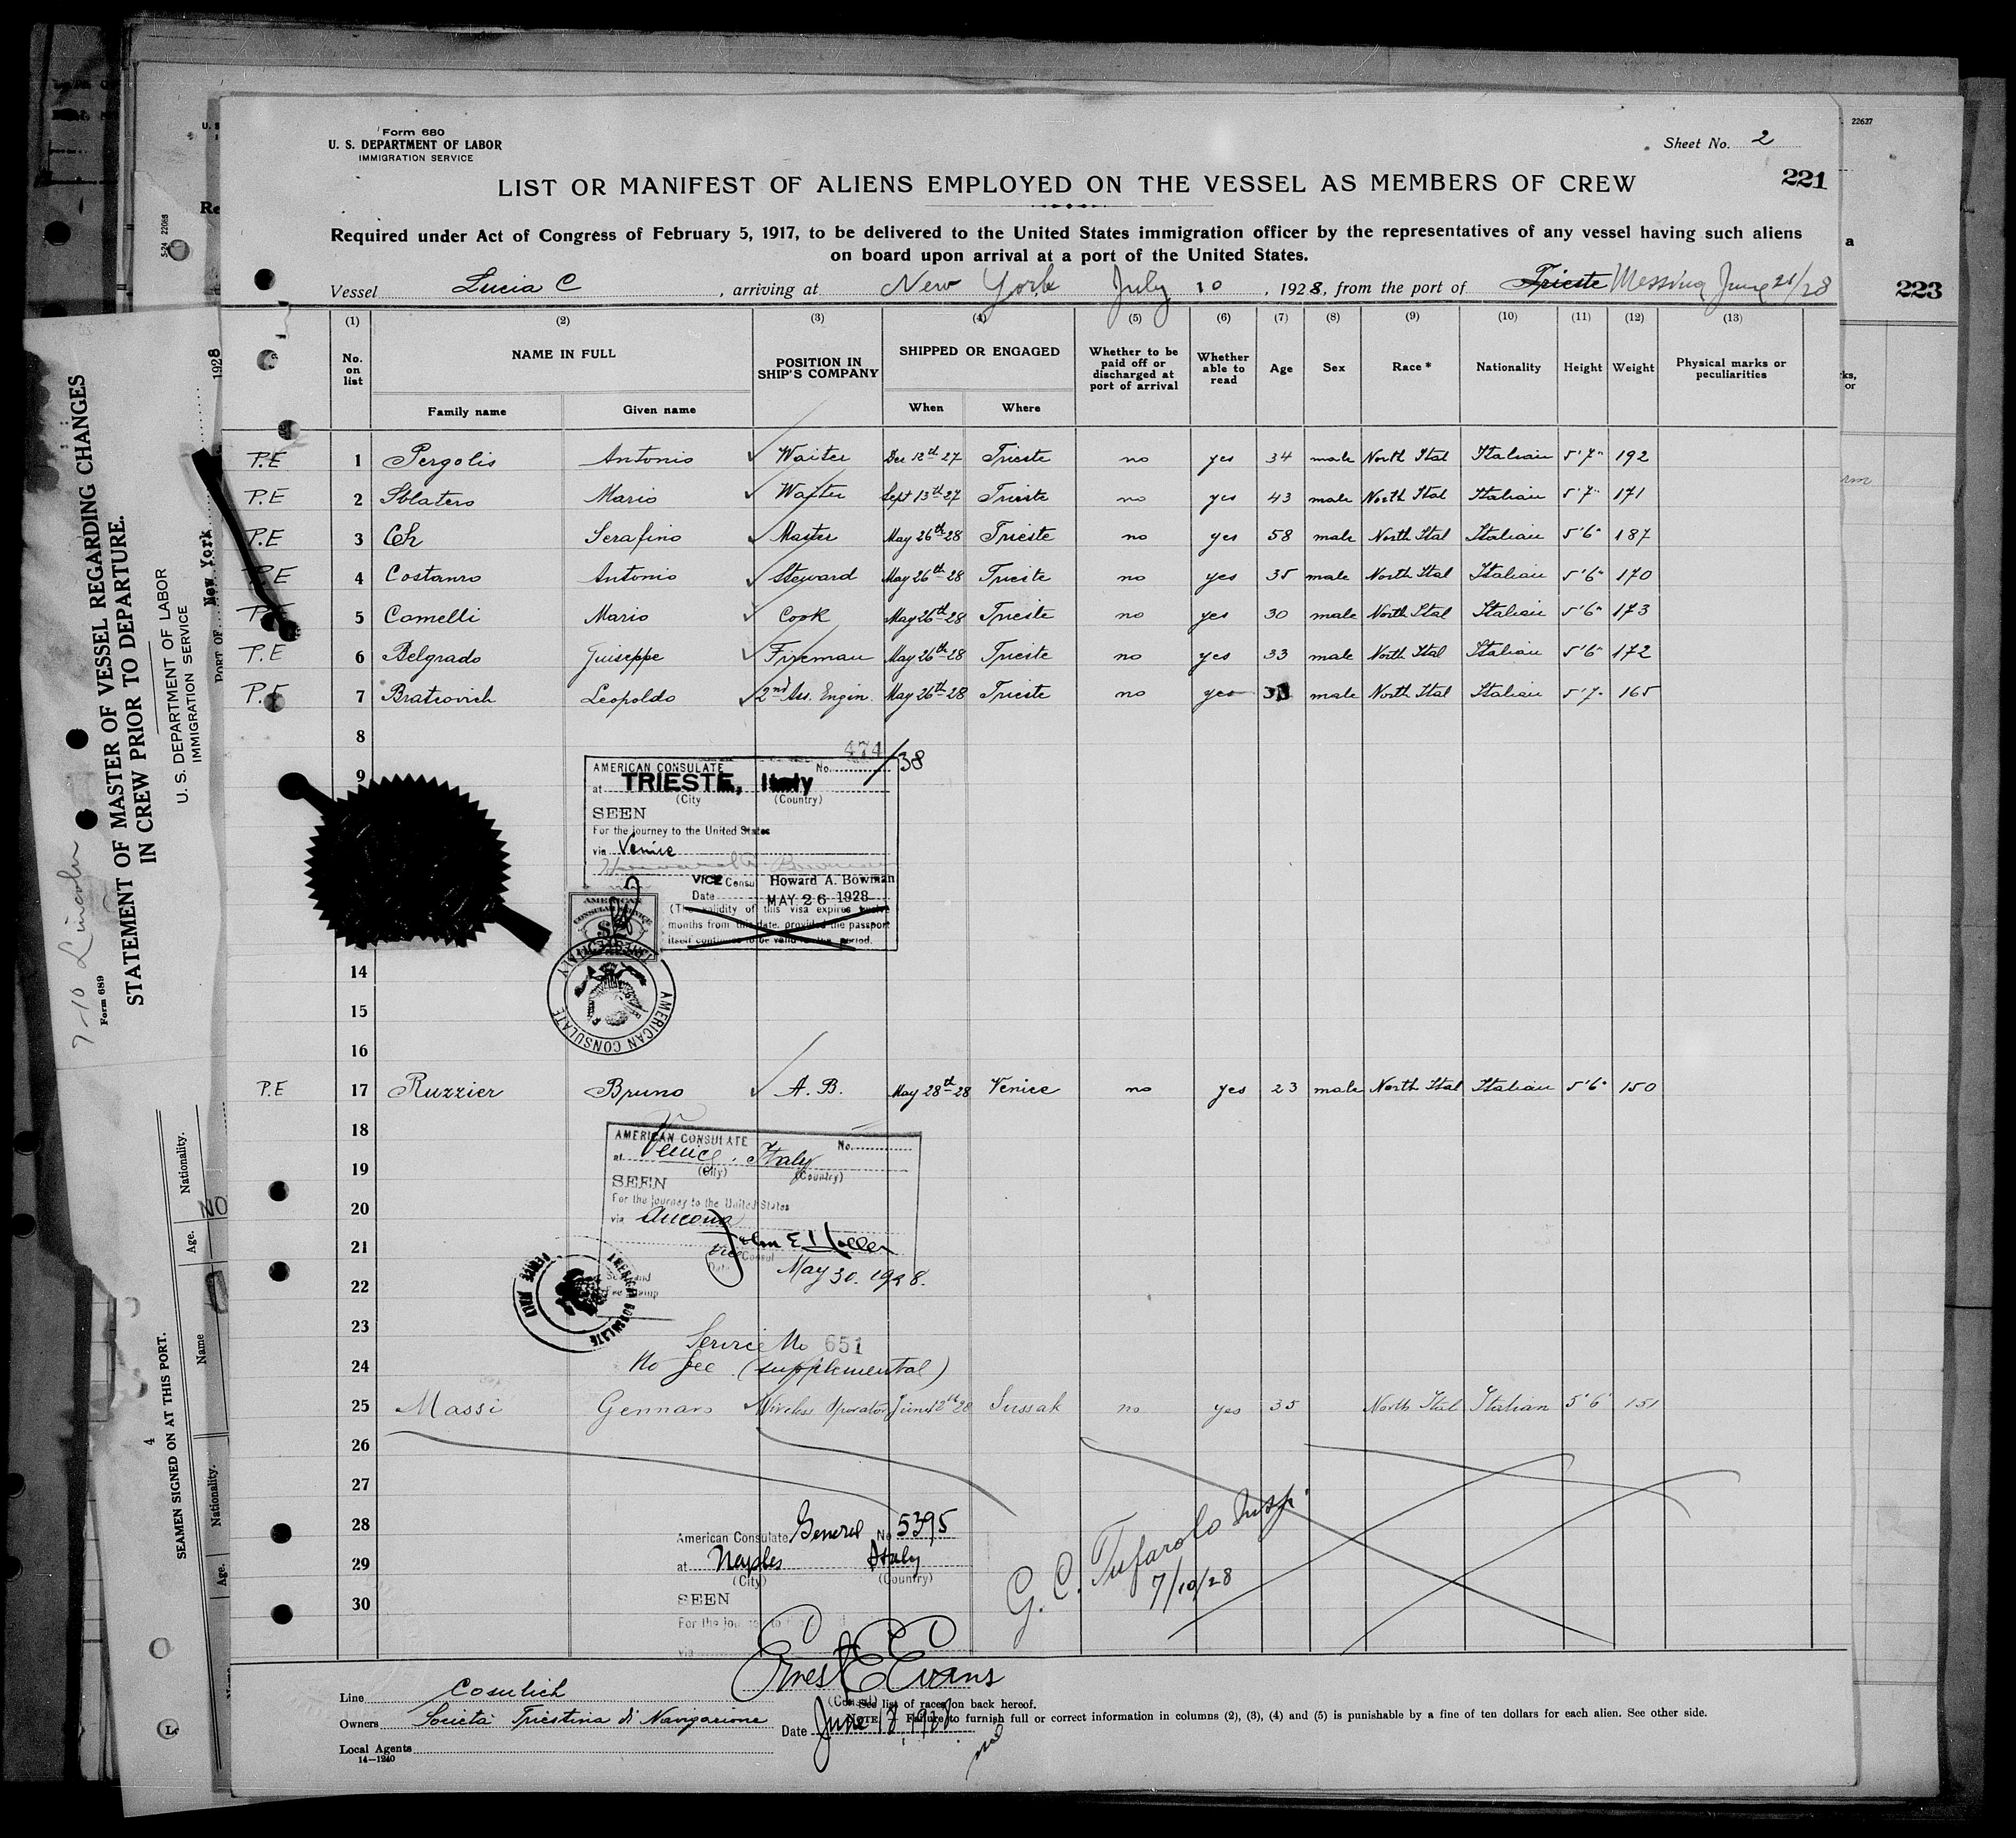 Form 680
U. S. DEPARTMENT OF LABOR
IMMIGRATION SERVICE
Sheet No. 2
221
LIST OR MANIFEST OF ALIENS EMPLOYED ON THE VESSEL AS MEMBERS OF CREW
Required under Act of Congress of February 5, 1917, to be delivered to the United States immigration officer by the representatives of any vessel having such aliens
on board upon arrival at a port of the United States.
Vessel Lucia C, arriving at New York July 10, 1928, from the port of Trieste Messina June 21/28
(1) (2) (3) (4) (5) (6) (7) (8) (9) (10) (11) (12) (13)
No. on list NAME IN FULL Family name Given name POSITION IN SHIP'S COMPANY SHIPPED OR ENGAGED When Where Whether to be paid off or discharged at port of arrival Whether able to read Age Sex Race* Nationality Height Weight Physical marks or peculiarities
P.E 1 Pergolis Antonio Waiter Dec 12th 27 Trieste no yes 34 male North Ital Italian 5'7" 192
P.E 2 Sblatero Mario Waiter Sept 13th 27 Trieste no yes 43 male North Ital Italian 5'7" 171
P.E 3 Serafino Master May 26th 28 Trieste no yes 58 male North Ital Italian 5'6" 187
P.E 4 Costanzo Antonio Steward May 26th 28 Trieste no yes 35 male North Ital Italian 5'6" 170
5 Comelli Mario Cook May 26th 28 Trieste no yes 30 male North Ital Italian 5'6" 173
P.E 6 Belgrado Guiseppe Fireman May 26th 28 Trieste no yes 33 male North Ital Italian 5'6" 172
P.E 7 Bratcovich Leopoldo 2nd Ass. Engin. May 26th 28 Trieste no yes male North Ital Italian 5'7" 165
8
9
474/38
AMERICAN CONSULATE No.
at TRIESTE, Italy
(City (Country)
SEEN
For the journey to the United States
via Venice
VICE Consul Howard A. Bowman
Date MAY 26 1928
(The validity of this visa expires twelve
months from this date, provided the passport
itself continues to be valid for that period.
AMERICAN CONSULAR SERVICE
AMERICAN CONSULATE TRIESTE, ITALY
14
15
16
P.E 17 Ruzzier Bruno A. B. May 28th 28 Venice no yes 23 male North Ital Italian 5'6" 150
18
AMERICAN CONSULATE No.
at Venice, Italy
(City) (Country)
19
SEEN
For the journey to the United States
20
via Ancona
21
Vice Consul
Date May 30. 1928.
22
Seal and
Fee Stamp
AMERICAN CONSULATE VENICE ITALY
23
Service No 651
24
No fee (supplemental)
25 Massi Gennaro Wireless Operator June 12th 28 Sussak no yes 35 North Ital Italian 5'6" 151
26
27
28
American Consulate General No 5395
29
at Naples Italy
(City) (Country)
30
SEEN
For the journey to the
via
Ernest E Evans
(Consul)
Date June 18, 1928
G. C. Tufarolo Insp.
7/10/28
Line Cosulich
Owners Società Triestina di Navigazione
Local Agents
14—1240
* See list of races on back hereof.
NOTE.—Failure to furnish full or correct information in columns (2), (3), (4) and (5) is punishable by a fine of ten dollars for each alien. See other side.
7-10 Lincoln
Form 689
STATEMENT OF MASTER OF VESSEL REGARDING CHANGES
IN CREW PRIOR TO DEPARTURE.
U. S. DEPARTMENT OF LABOR
IMMIGRATION SERVICE
PORT OF New York 1928
4
SEAMEN SIGNED ON AT THIS PORT.
Name Age. Nationality.
NO
Age. Nationality.
5-24 22088
22627
223